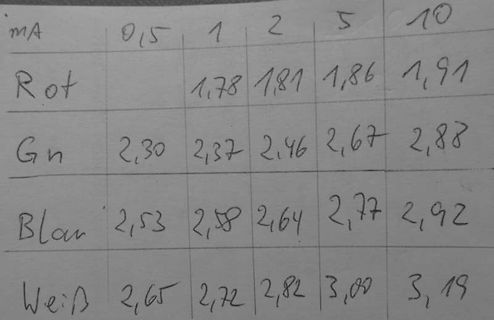 mA 0,5 1 2 5 10
Rot 1,78 1,81 1,86 1,91
Gn 2,30 2,37 2,46 2,67 2,88
Blau 2,53 2,58 2,64 2,77 2,92
Weiß 2,65 2,72 2,82 3,00 3,19